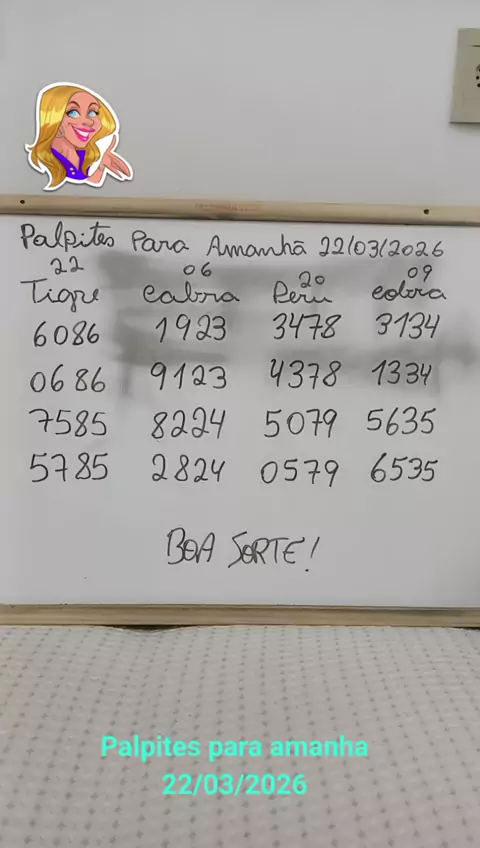 Palpites Para Amanhã 22/03/2026
22 06 20 09
Tigre Cabra Peru cobra
6086 1923 3478 3134
0686 9123 4378 1334
7585 8224 5079 5635
5785 2824 0579 6535
BOA SORTE!
Palpites para amanha
22/03/2026